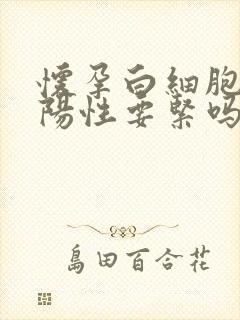 懷孕白細胞
陽性要緊嗎
島田百合花